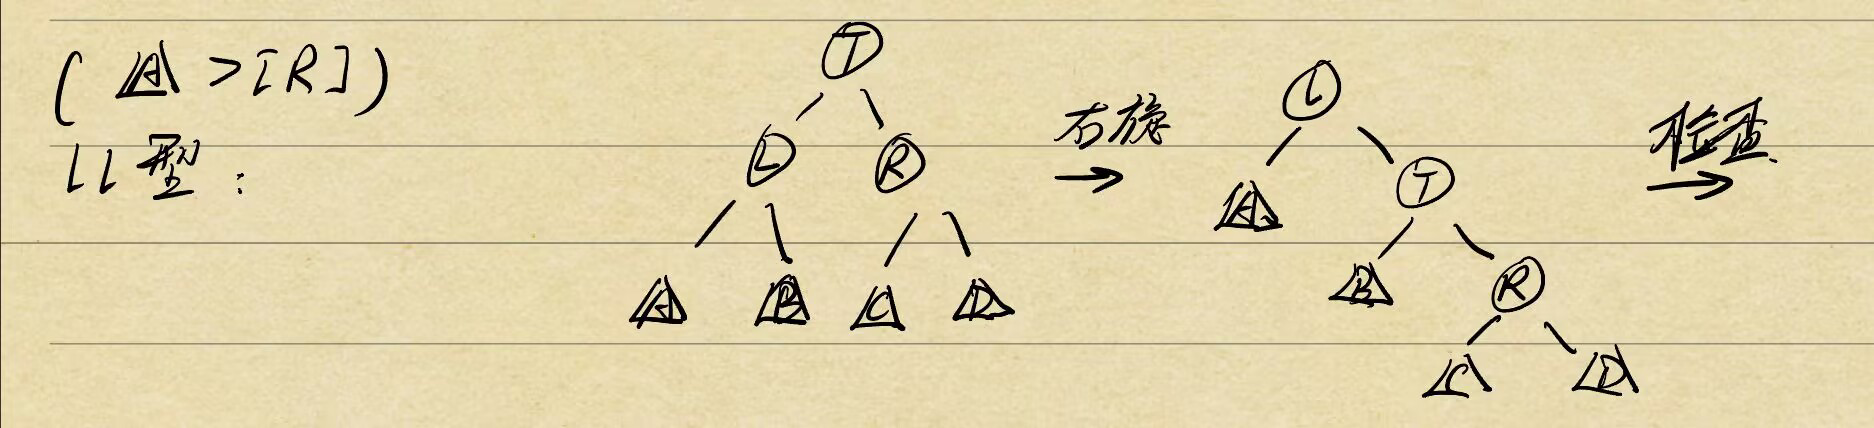 (A > [R])
LL型：
T
L R
A B C D
右旋
→
L
A T
B R
C D
检查
→